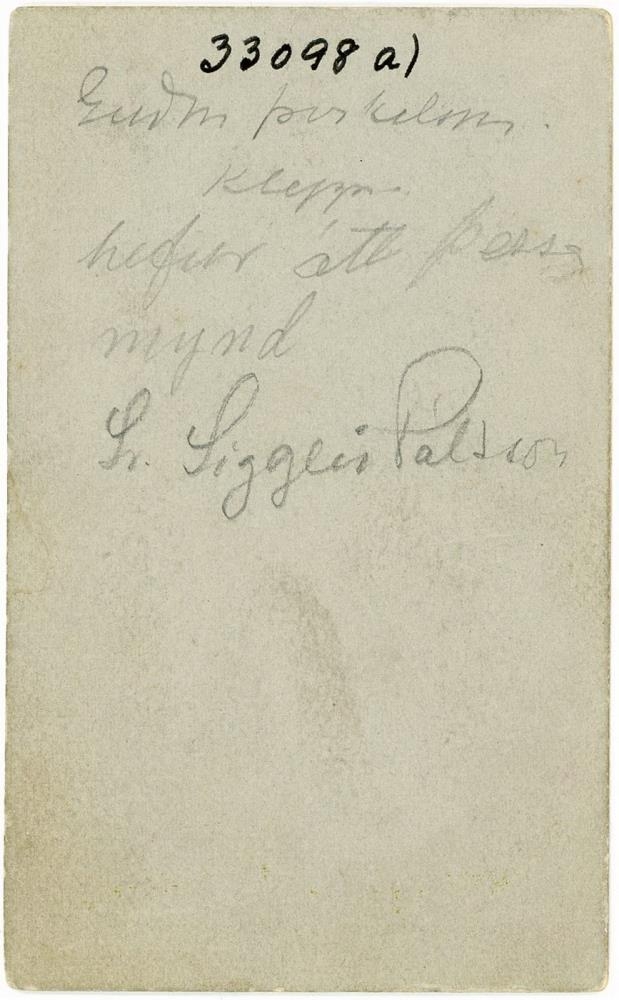 33098 a)
Guðm Þorkelsson.
Kleppi.
hefur átt þessa
mynd
Sr. Siggeir Pálsson